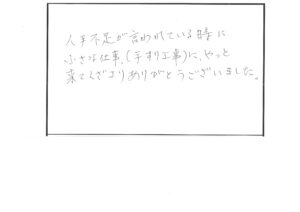 人手不足が言われている時に
小さな仕事、(手すり工事)に、やっと
来てくださりありがとうございました。